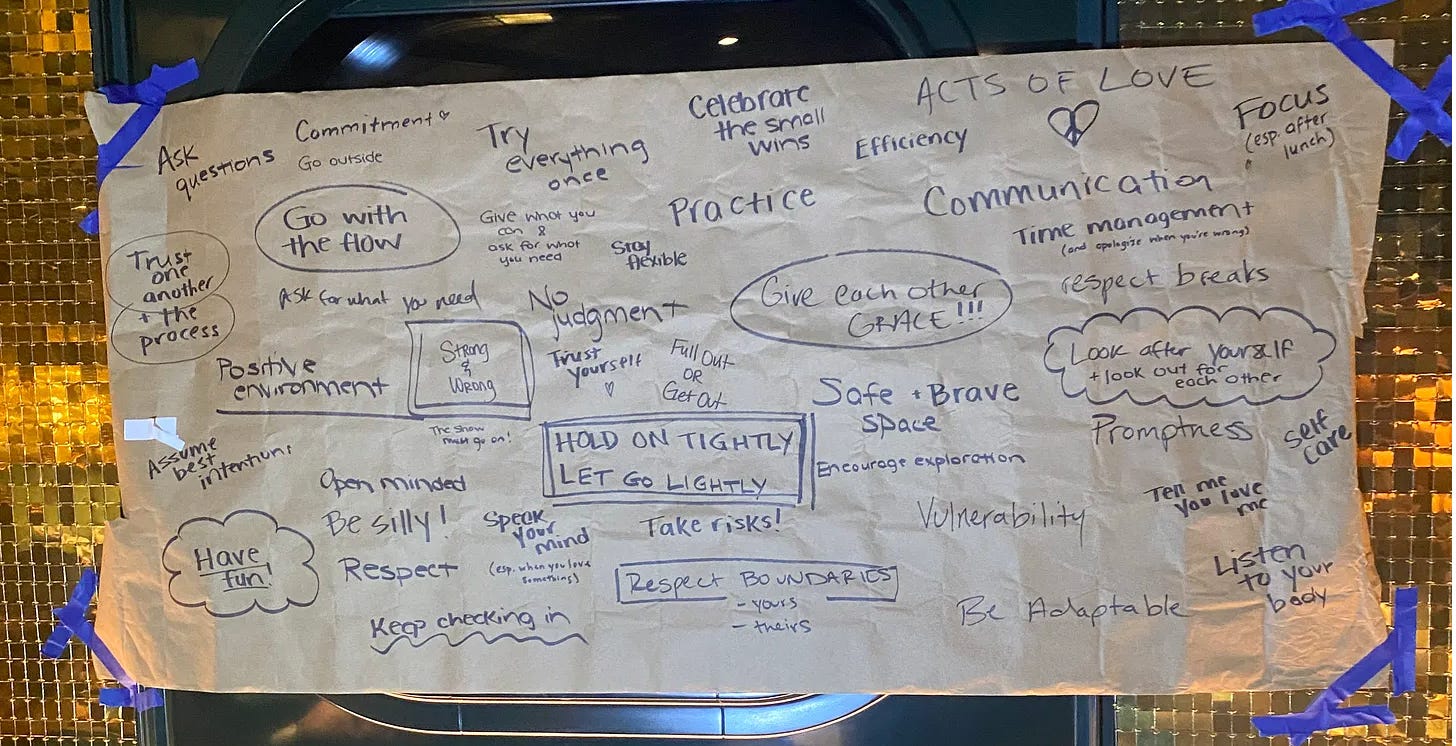 ACTS OF LOVE
Celebrate
the small
wins
Efficiency
FOCUS
(esp. after
lunch)
Commitment
Go outside
Ask
questions
Try
everything
once
Go with
the flow
Give what you
can &
ask for what
you need
Stay
flexible
Practice
Communication
Time management
(and apologize when you're wrong)
respect breaks
Trust
one
another
+ the
process
Ask for what you need
No
judgment
Give each other
GRACE!!!
Look after yourself
+ look out for
each other
Positive
environment
Strong
&
Wrong
Trust
yourself
Full Out
OR
Get Out
Safe + Brave
Space
Promptness
Self
care
The show
must go on!
HOLD ON TIGHTLY
LET GO LIGHTLY
Encourage exploration
Assume
best
intentions
Open minded
Be silly!
Speak
your
mind
(esp. when you love
something)
Take risks!
Vulnerability
Tell me
you love
me
Have
fun!
Respect
Respect BOUNDARIES
- yours
- theirs
Listen
to your
body
Be Adaptable
Keep checking in